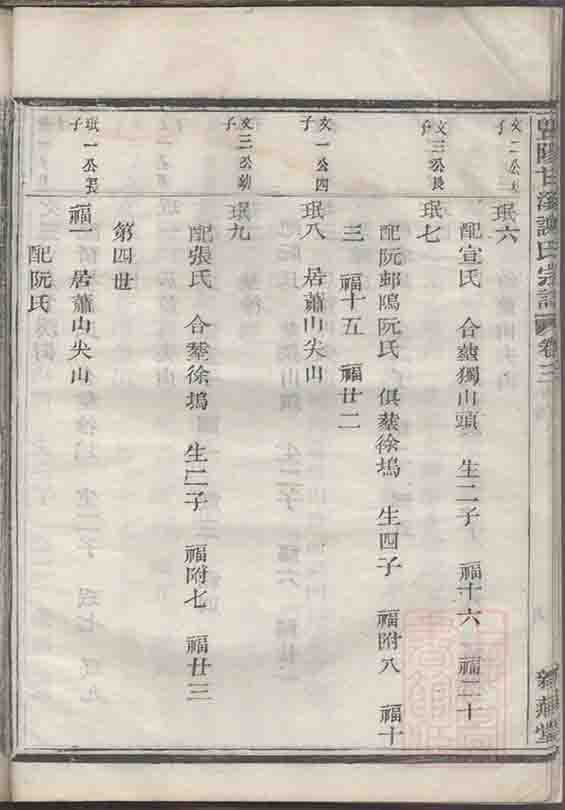 暨陽甘溪諸氏宗譜 卷三
文二公
子
珉六
配宣氏 合塟獨山頭 生二子 福十六 福二十
文三公長
子
珉七
配阮邺鳴阮氏 俱塟徐塢 生四子 福附八 福十
三 福十五 福廿二
文一公四
子
珉八 居蕭山尖山
文三公幼
子
珉九
配張氏 合塟徐塢 生二子 福附七 福廿三
第四世
珉一公長
子
福一 居蕭山尖山
配阮氏